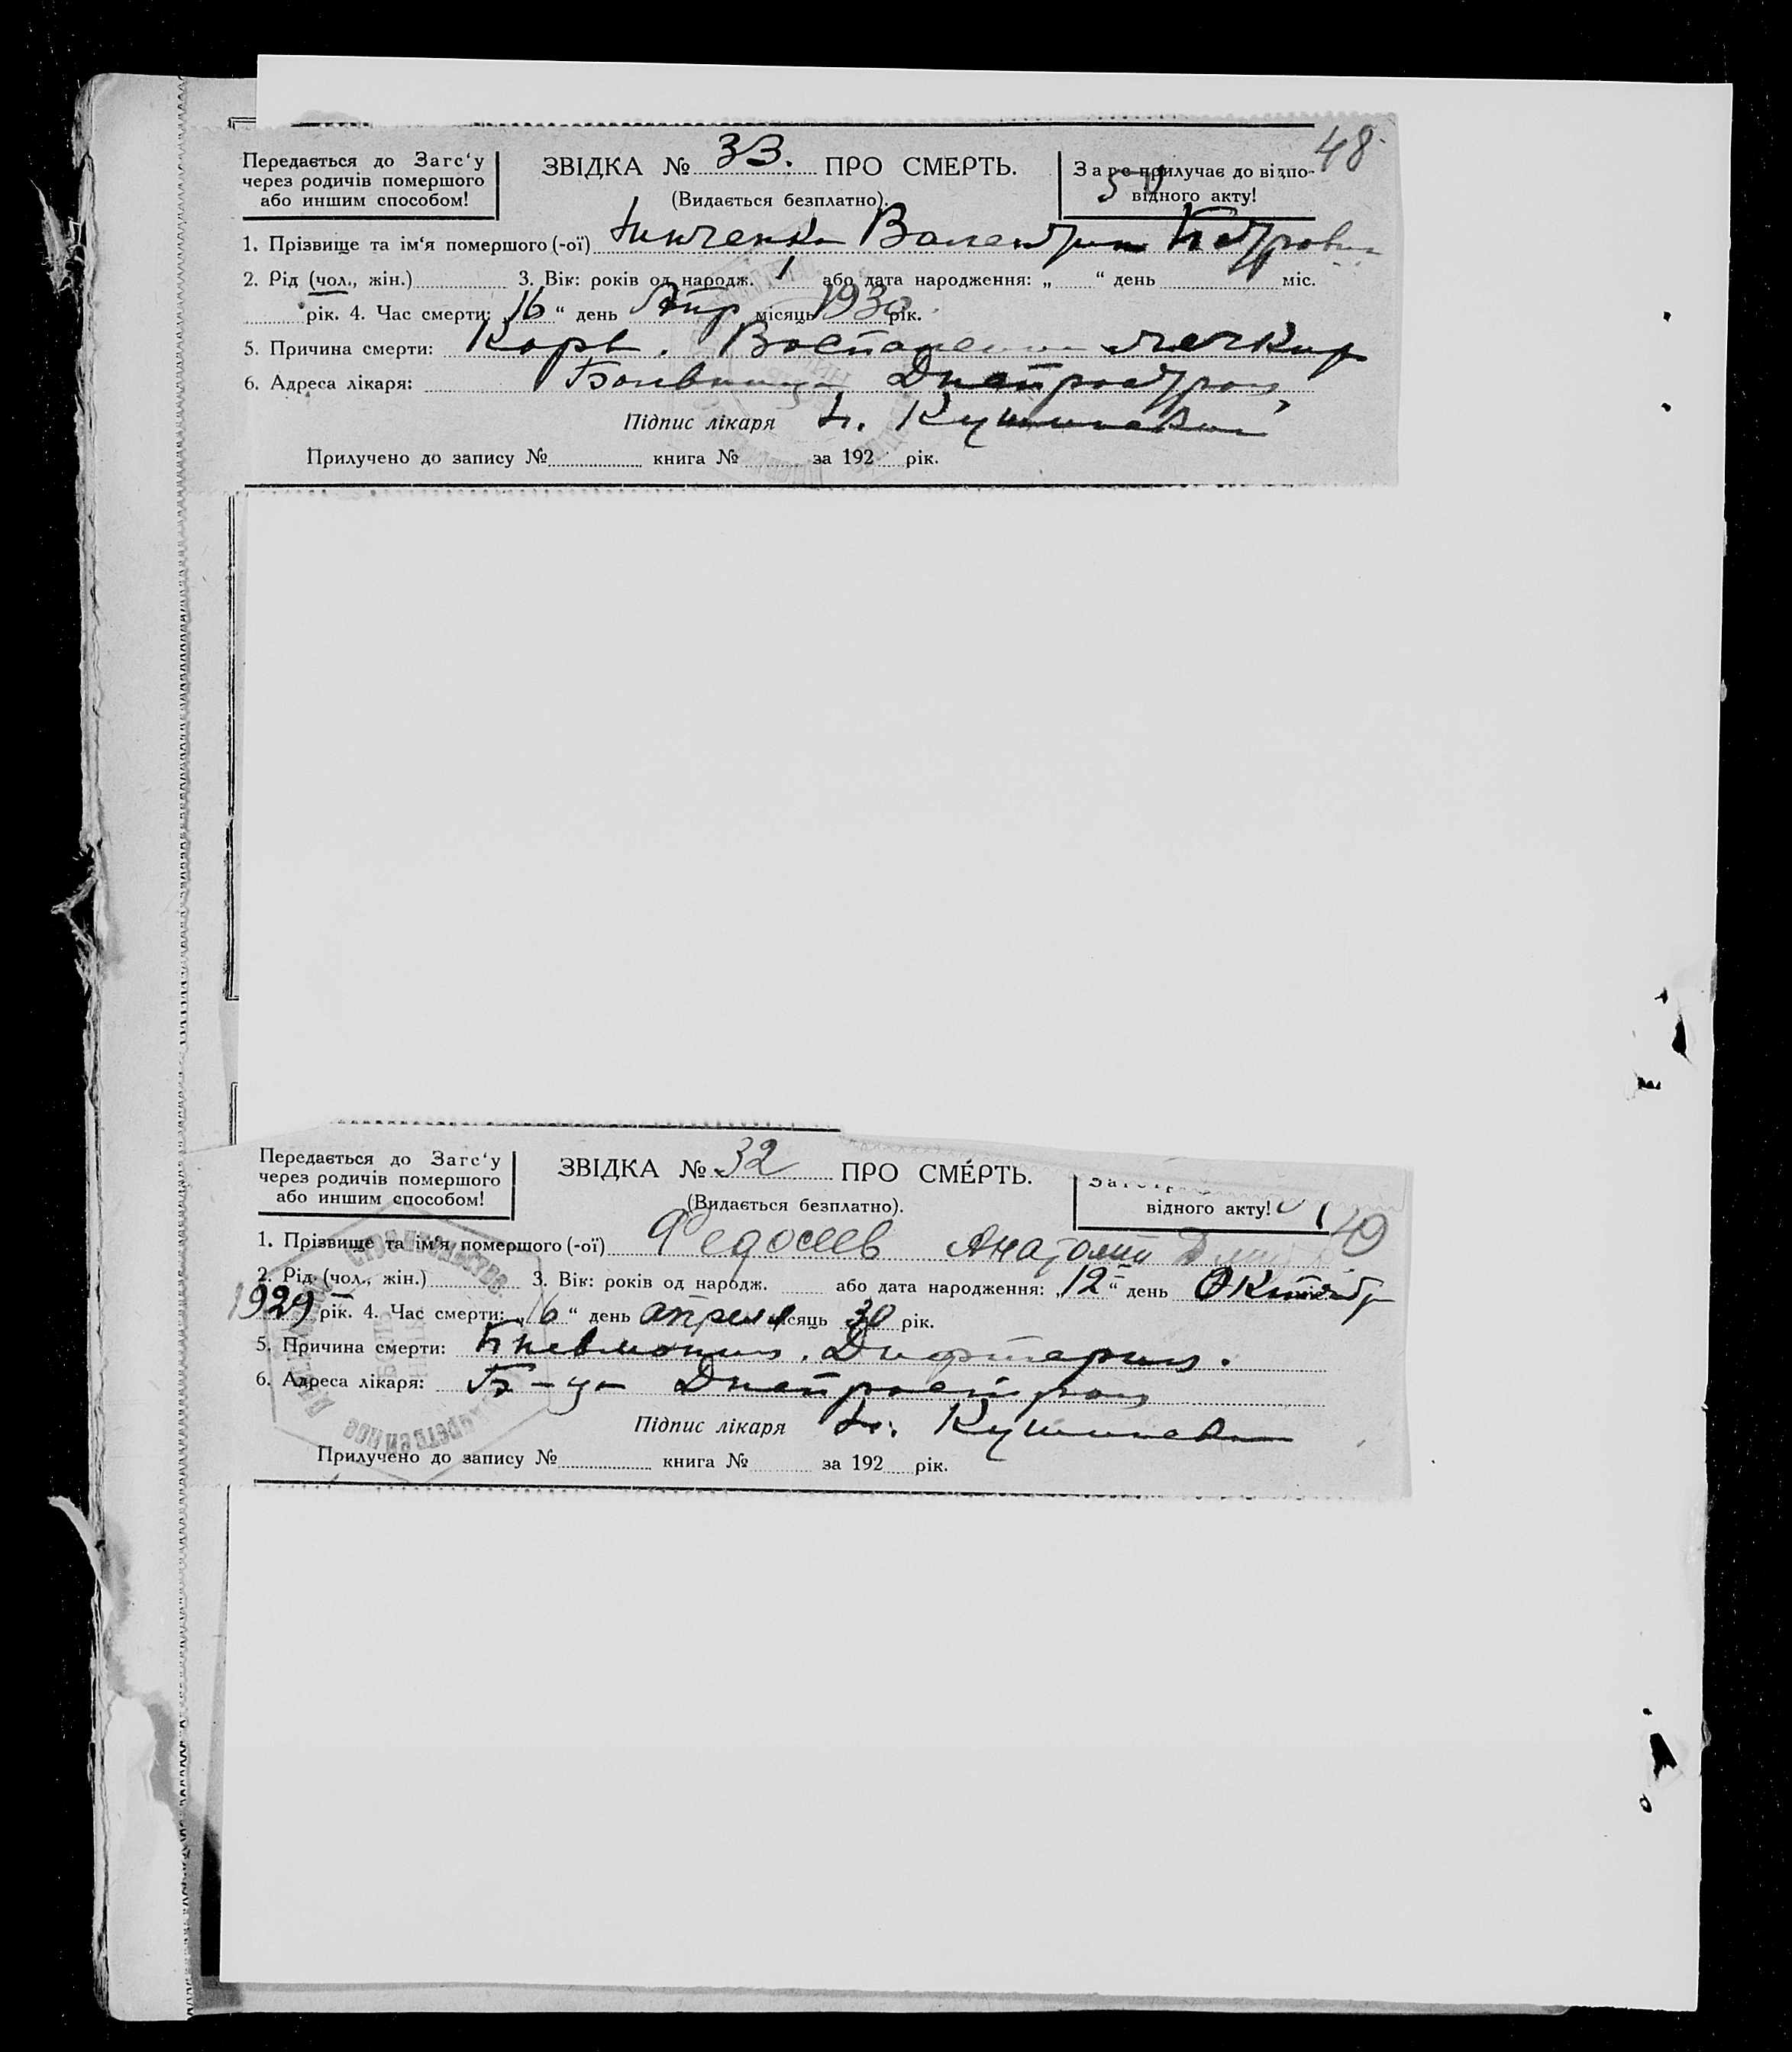 48
Передається до Загс'у
через родичів помершого
або иншим способом!
ЗВІДКА № 33. ПРО СМЕРТЬ.
(Видається безплатно).
Загс прилучає до відпо-
відного акту!
1. Прізвище та ім'я помершого (-ої) Валентин Петрович
2. Рід (чол., жін.) 3. Вік: років од народж. 1 або дата народження: „ “ день міс.
рік. 4. Час смерти: „16“ день Апр місяць 1930 рік.
5. Причина смерти: Корь. Воспаление легких
6. Адреса лікаря: Больница Днепрострой
Підпис лікаря
Прилучено до запису № книга № за 192 рік.
Передається до Загс'у
через родичів помершого
або иншим способом!
ЗВІДКА № 32 ПРО СМЕРТЬ.
(Видається безплатно).
відного акту!
49
1. Прізвище та ім'я помершого (-ої) Федосеев Анатолий
2. Рід (чол., жін.) 3. Вік: років од народж. або дата народження: „12“ день Октябр
1929 рік. 4. Час смерти: „16“ день апреля місяць 30 рік.
5. Причина смерти: Пневмония. Дифтерия.
6. Адреса лікаря: Б-ца Днепрострой
Підпис лікаря
Прилучено до запису № книга № за 192 рік.